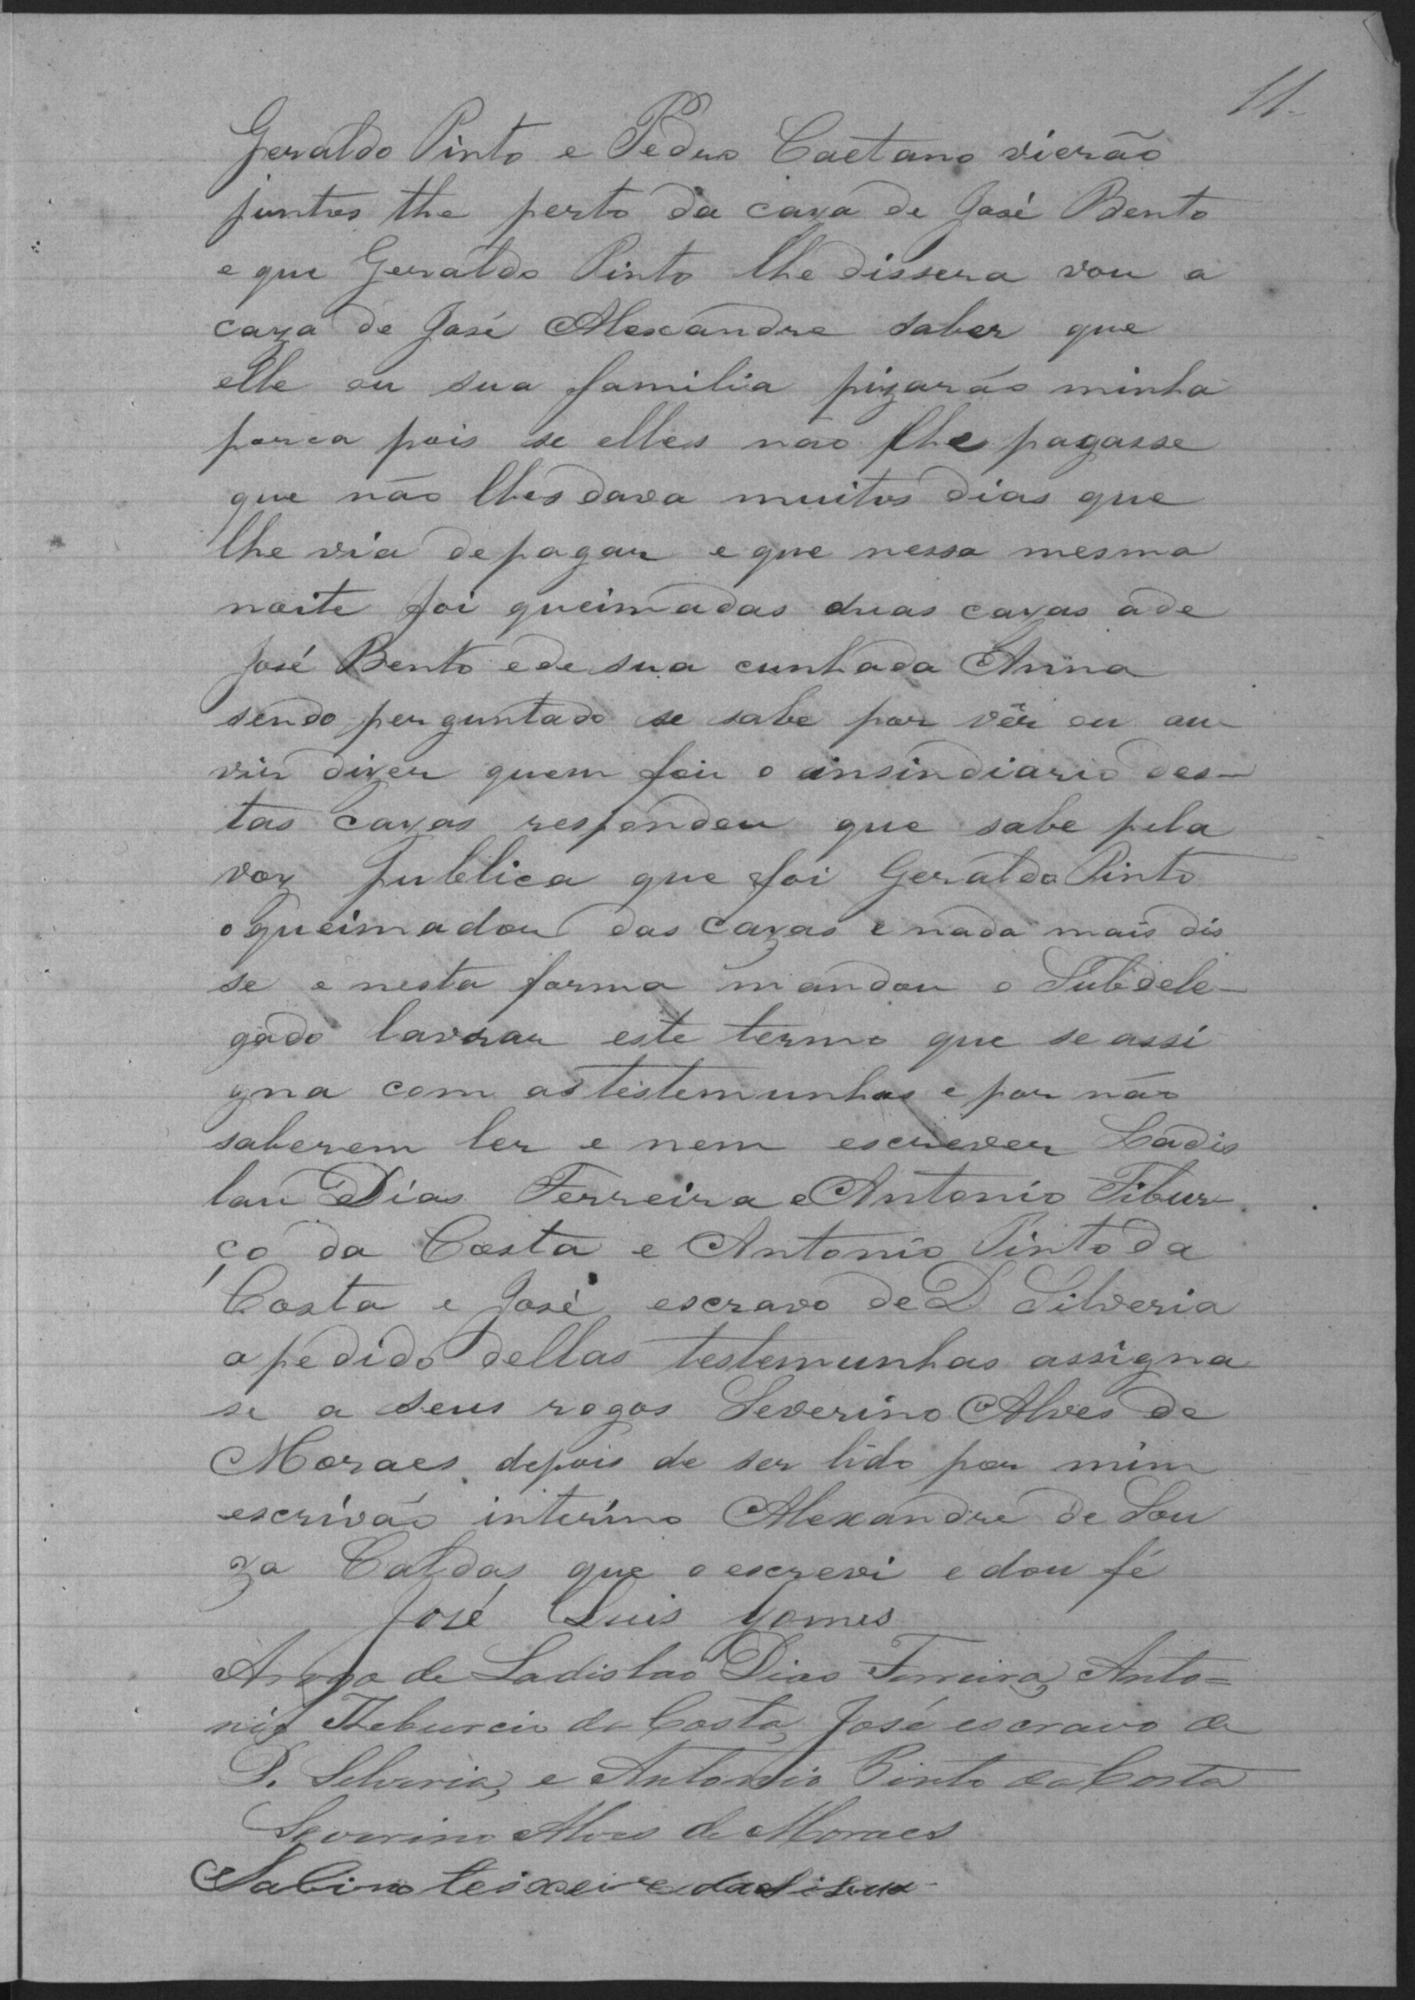 11.
Geraldo Pinto e Pedro Caetano vierão
juntos the perto da caza de José Bento
e que Geraldo Pinto lhe dissera vou a
caza de José Alexandre saber que
elle ou sua familia pizarão minha
porca pois se elles não lhe pagasse
que não lhes dava muitos dias que
lhe via de pagar e que nessa mesma
noite foi queimadas duas cazas a de
José Bento e de sua cunhada Anna
sendo perguntado se sabe por vêr ou au-
vir dizer quem foi o insindiario des-
tas cazas respondeu que sabe pela
voz publica que foi Geraldo Pinto
o queimador das cazas e nada mais dis
se e nesta forma mandou o Subdele-
gado lavrar este termo que se assi
gna com as testemunhas e por não
saberem ler e nem escrever Ladis
lau Dias Ferreira e Antonio Tibur
ço da Costa e Antonio Pinto da
Costa e José escravo de D Silveria
a pedido dellas testemunhas assigna
se a seus rogos Severino Alves de
Moraes depois de ser lido por mim
escrivão interino Alexandre de Sou
za Caldas que o escrevi e dou fé
José Luis Gomes
Arogo de Ladislao Dias Ferreira, Anto=
nio Theburcio da Costa, José escravo de
D. Silveria, e Antonio Pinto da Costa
Severino Alves de Moraes
Sabino teixeira da Silva